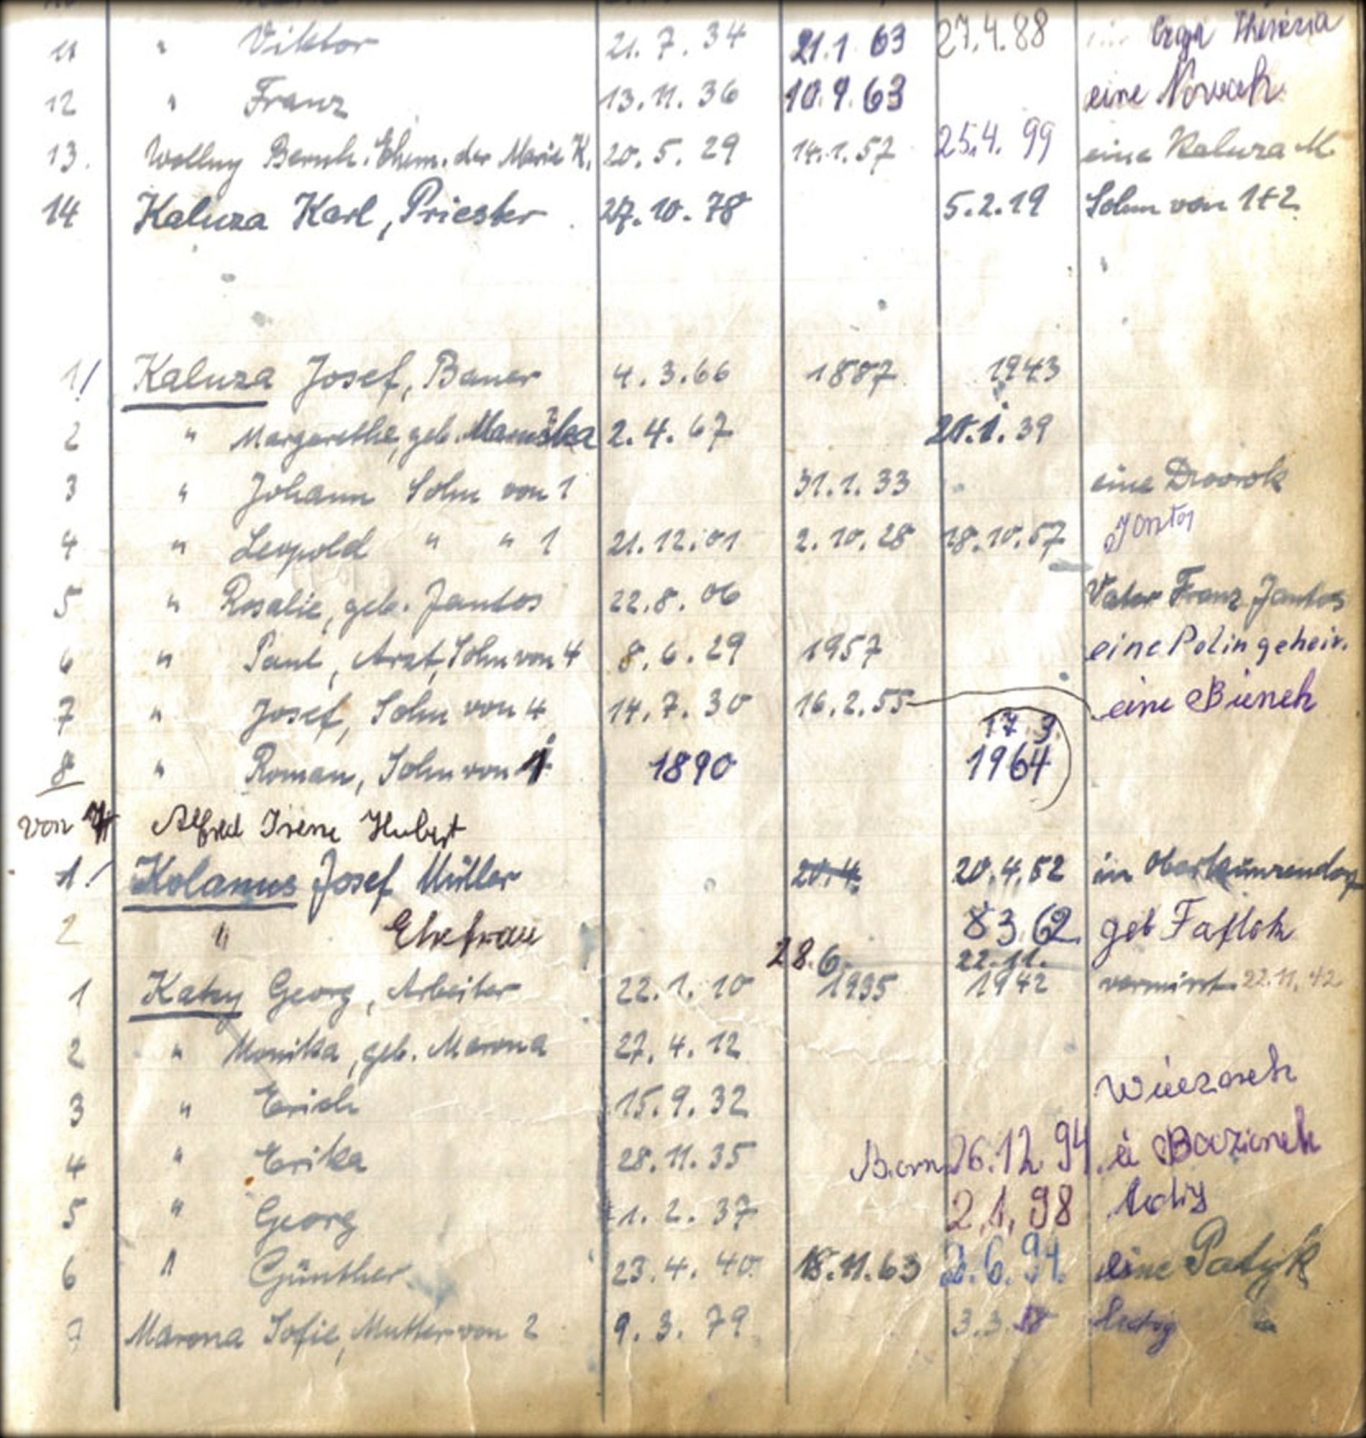 11 " Viktor 21.7.34 21.1.63 27.4.88 Theresia
12 " Franz 13.11.36 10.9.63 eine Nowak
13. Wollny Bernh. Ehem. der Marie K. 20.5.29 14.1.57 25.4.99 eine Kaluza M.
14 Kaluza Karl, Priester 27.10.78 5.2.19 Sohn von 1+2
1/ Kaluza Josef, Bauer 4.3.66 1887 1943
2 " Margarethe, geb. 2.4.67 20.1.39
3 " Johann Sohn von 1 31.1.33 eine
4 " Leopold " " 1 21.12.01 2.10.28 18.10.57
5 " Rosalie, geb. Jantos 22.8.06 Vater Franz Jantos
6 " Paul, Arzt, Sohn von 4 8.6.29 1957 eine Polin geheir.
7 " Josef, Sohn von 4 14.7.30 16.2.55 eine Bienek
17 3
8 " Roman, Sohn von 1 1890 1964
von Alfred Irene Hubert
1! Kolanus Josef Müller 20.4. 20.4.52 in
2 " Ehefrau 8 3.62. geb
28.6. 22.11.
1 Katzy Georg, Arbeiter 22.1.10 1935 1942 vermisst 22.11.42
2 " Monika, geb. Marona 27.4.12
3 " Erich 15.9.32
4 " Erika 28.11.35 26.12.94.
5 " Georg 1.2.37 2.1.98
6 " Günther 23.4.40 18.11.63 eine Patyk
7 Marona Sofie, Mutter von 2 9.3.79 3.3.